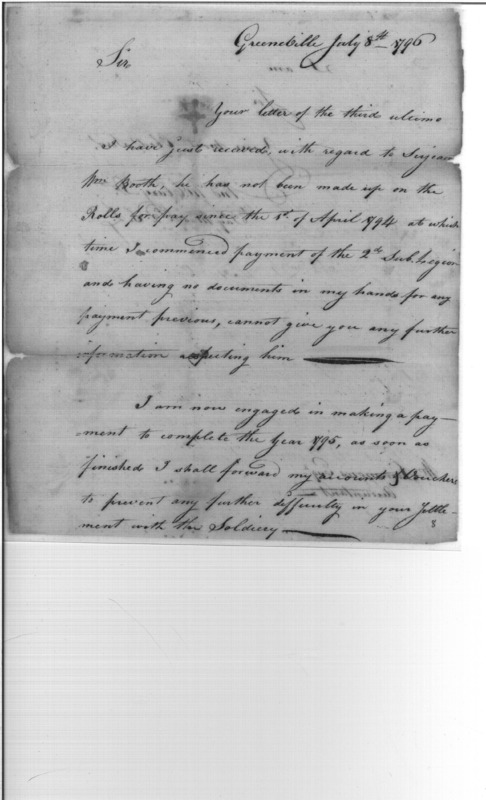 Greeneville July 8th 1796
Sir
Your letter of the third ulimo
I have just received, with regard to Serjeant
Wm Booth, he has not been made up on the
Rolls for pay since the 1st of April 1794 at which
time I commenced payment of the 2d Sub Legion
and having no documents in my hands for any
payment previous, cannot give you any further
information respecting him
I am now engaged in making a pay-
ment to complete the Year 1795, as soon as
finished I shall forward my accounts & Vouchers
to prevent any further difficulty in your Settle-
ment with the Soldiery